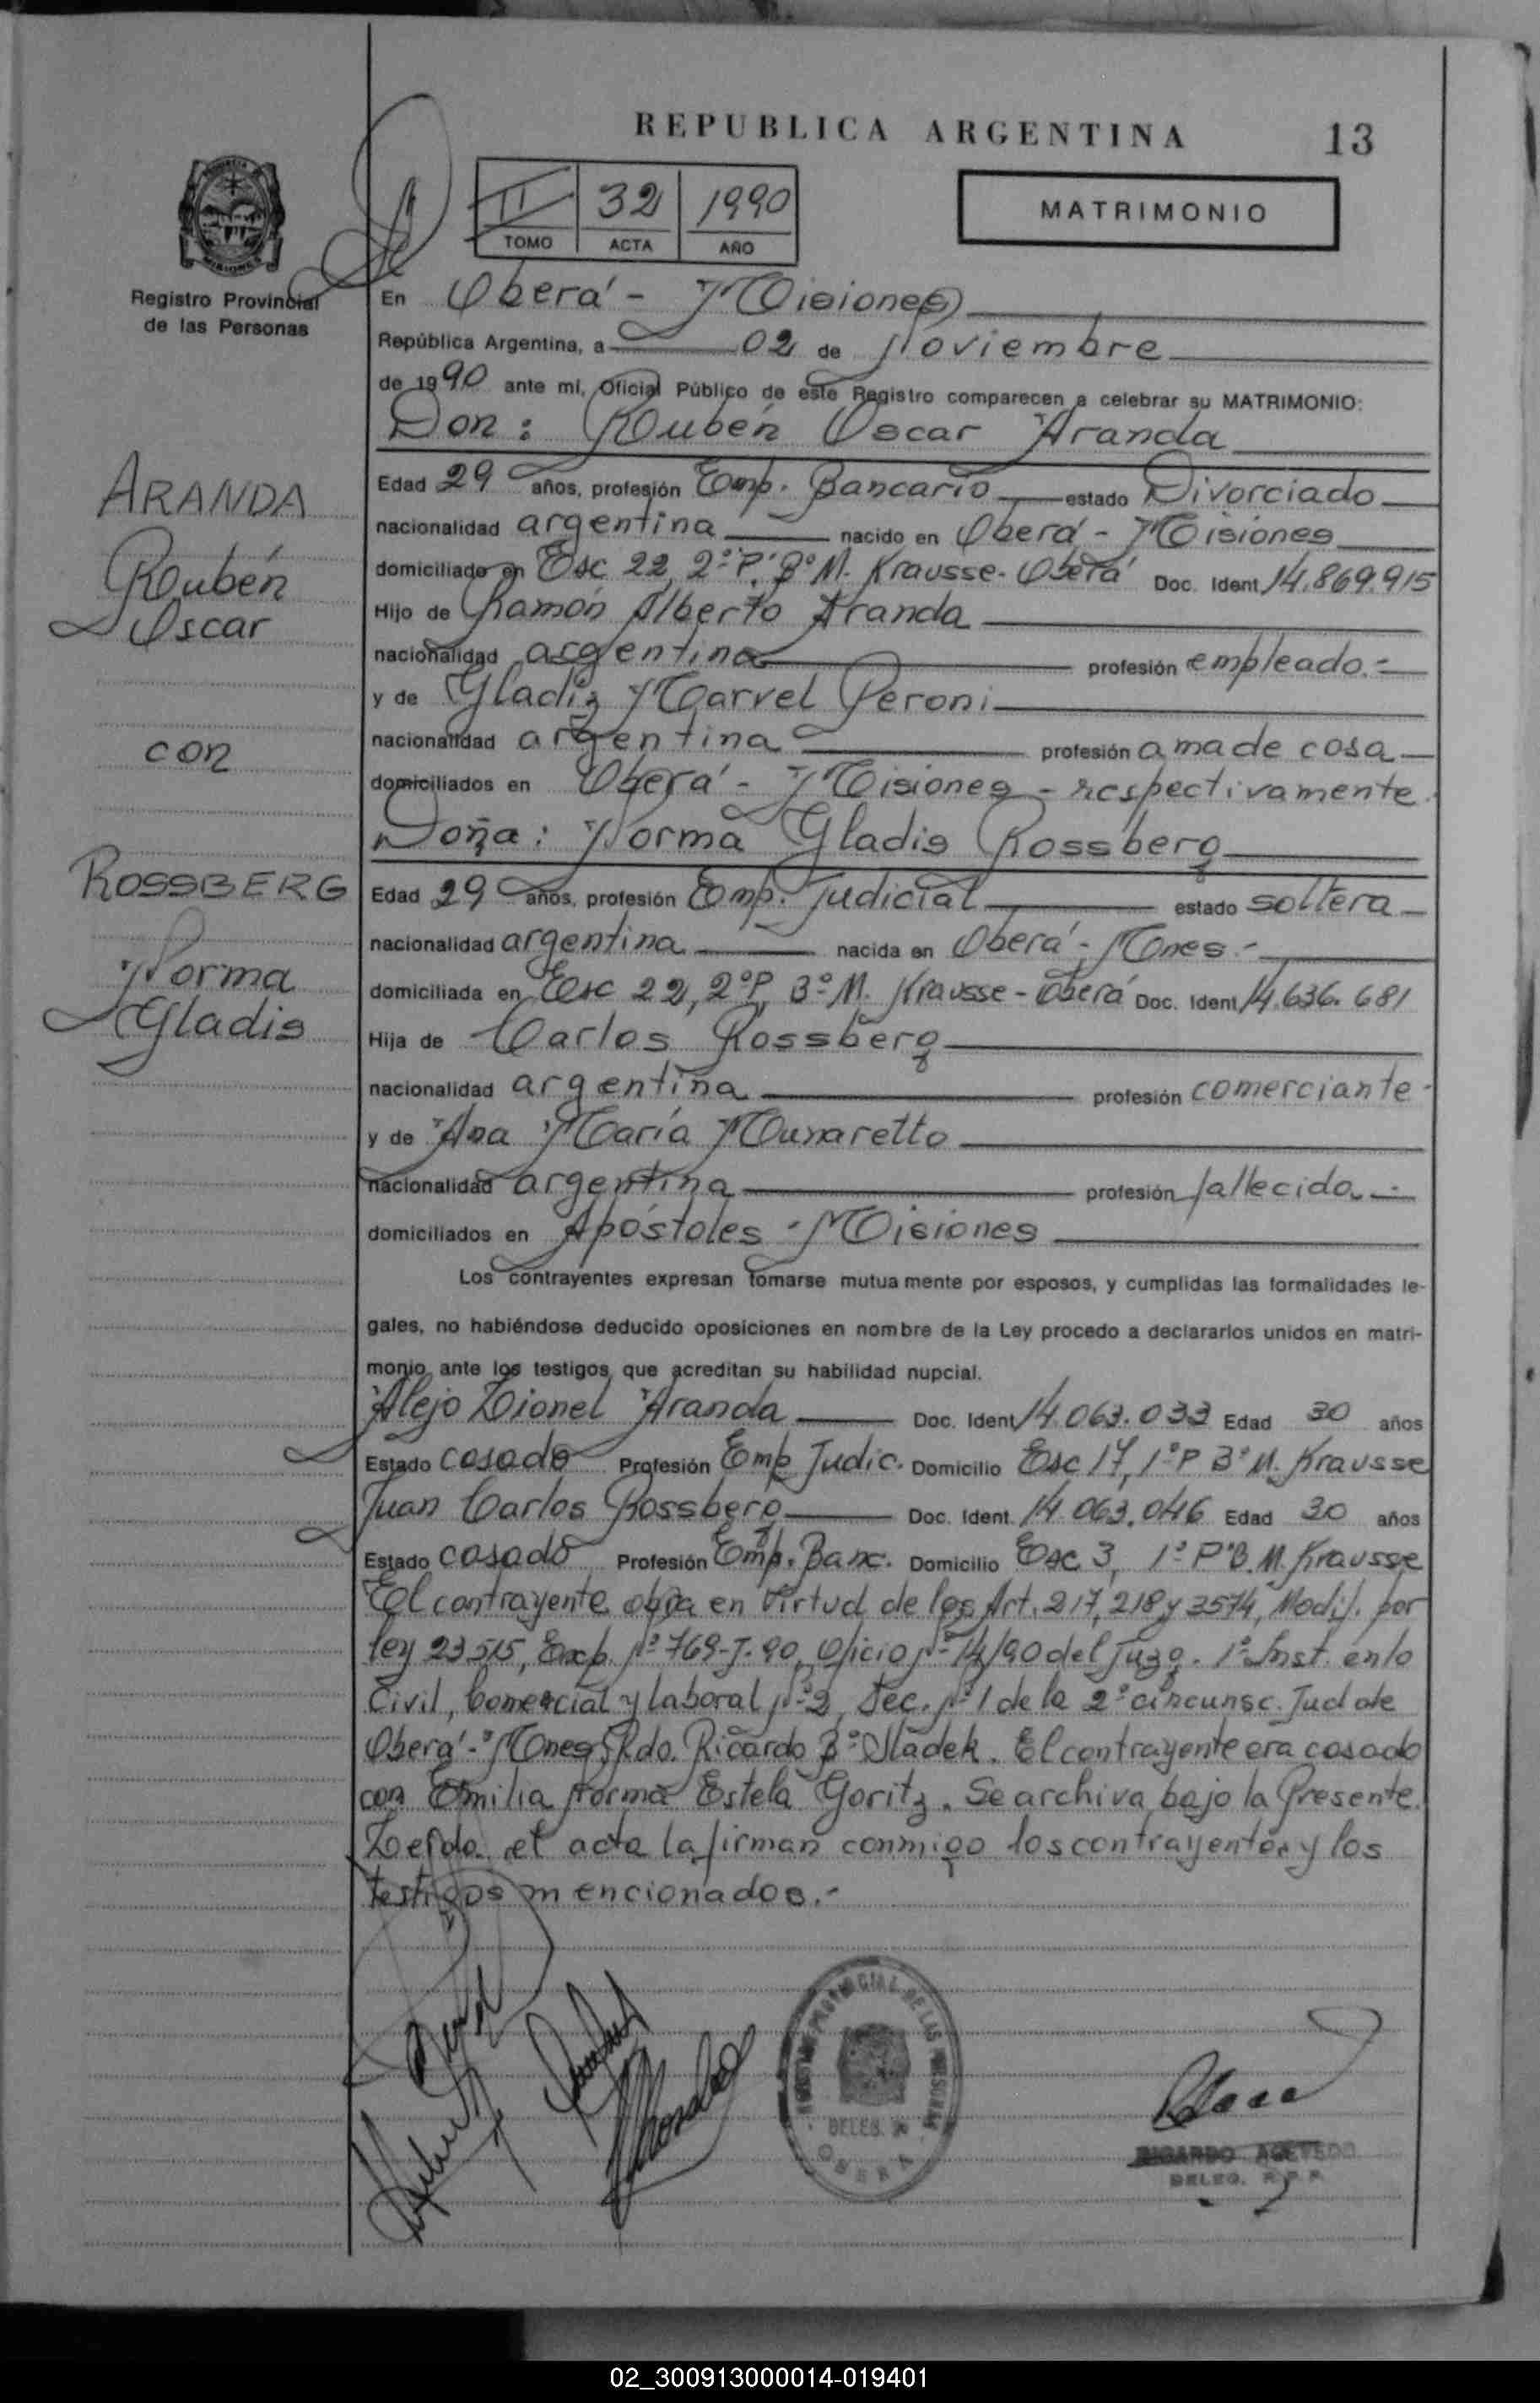 REPUBLICA ARGENTINA 13
II 32 1990
TOMO ACTA AÑO
MATRIMONIO
Registro Provincial
de las Personas
En Oberá - Misiones
República Argentina, a 02 de Noviembre
de 1990 ante mí, Oficial Público de este Registro comparecen a celebrar su MATRIMONIO:
Don: Rubén Oscar Aranda
Edad 29 años, profesión Emp. Bancario estado Divorciado
nacionalidad argentina nacido en Oberá - Misiones
domiciliado en Esc 22, 2º P. Bº M. Krausse - Oberá Doc. Ident 14.869.915
Hijo de Ramón Alberto Aranda
nacionalidad argentina profesión empleado.-
y de Gladiz Marvel Peroni
nacionalidad argentina profesión ama de casa
domiciliados en Oberá - Misiones - respectivamente.
Doña: Norma Gladis Rossberg
Edad 29 años, profesión Emp. Judicial estado soltera
nacionalidad argentina nacida en Oberá - Mnes.-
domiciliada en Esc 22, 2º P, Bº M. Krausse - Oberá Doc. Ident 14.636.681
Hija de Carlos Rossberg
nacionalidad argentina profesión comerciante-
y de Ana María Munaretto
nacionalidad argentina profesión fallecida.-
domiciliados en Apóstoles - Misiones
Los contrayentes expresan tomarse mutuamente por esposos, y cumplidas las formalidades le-
gales, no habiéndose deducido oposiciones en nombre de la Ley procedo a declararlos unidos en matri-
monio ante los testigos que acreditan su habilidad nupcial.
Alejo Lionel Aranda Doc. Ident 14.063.033 Edad 30 años
Estado casado Profesión Emp Judic. Domicilio Esc 17, 1º P Bº M. Krausse
Juan Carlos Rossberg Doc. Ident. 14.063.046 Edad 30 años
Estado casado Profesión Emp. Banc. Domicilio Esc 3, 1º P B. M. Krausse
El contrayente obra en virtud de los Art. 217, 218 y 3574, Modif. por
ley 23515, Exp. Nº 769-J-90, Oficio Nº 14/90 del Juzg. 1º Inst. en lo
Civil, Comercial y laboral Nº 2, Sec. Nº 1 de la 2º circunsc. Jud de
Oberá - Mnes, Rdo. Ricardo Bº Sladek. El contrayente era casado
con Emilia Norma Estela Goritz. Se archiva bajo la Presente.
Leída el acta la firman conmigo los contrayentes y los
testigos mencionados.-
ARANDA
Rubén
Oscar
con
ROSSBERG
Norma
Gladis
REGISTRO PROVINCIAL DE LAS PERSONAS
DELEG.
OBERA
RICARDO ACEVEDO
DELEG. R.P.P.
02_300913000014-019401